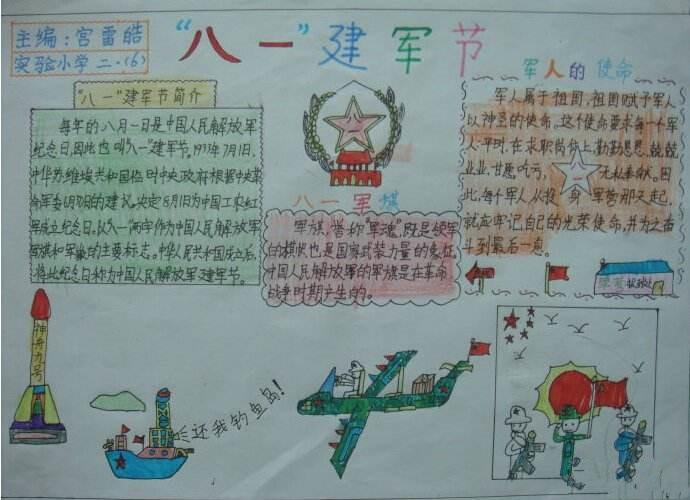 主编:宫雷皓
实验小学二·(6)
“八一”建军节
“八一”建军节简介
每年的八月一日是中国人民解放军
纪念日,因此也叫“八一”建军节。1933年7月1日,
中华苏维埃共和国临时中央政府根据中央革
命军委6月30日的建议,决定8月1日为中国工农红
军成立纪念日。以“八一”两字作为中国人民解放军
军旗和军徽的主要标志。中华人民共和国成立后,
将此纪念日称为中国人民解放军建军节。
八一
八一军旗
军旗,誉称“军魂”,既是统军
的旗帜也是国家武装力量的象征。
中国人民解放军的军旗是在革命
战争时期产生的。
军人的使命
军人属于祖国,祖国赋予军人
以神圣的使命。这个使命要求每一个军
人平时,在本职岗位上勤勤恳恳,兢兢
业业,甘愿吃亏,无私奉献。因
此,每个军人从投身军营那天起,
就应牢记自己的光荣使命,并为之奋
斗到最后一息。
八一
神舟九号
还我钓鱼岛!